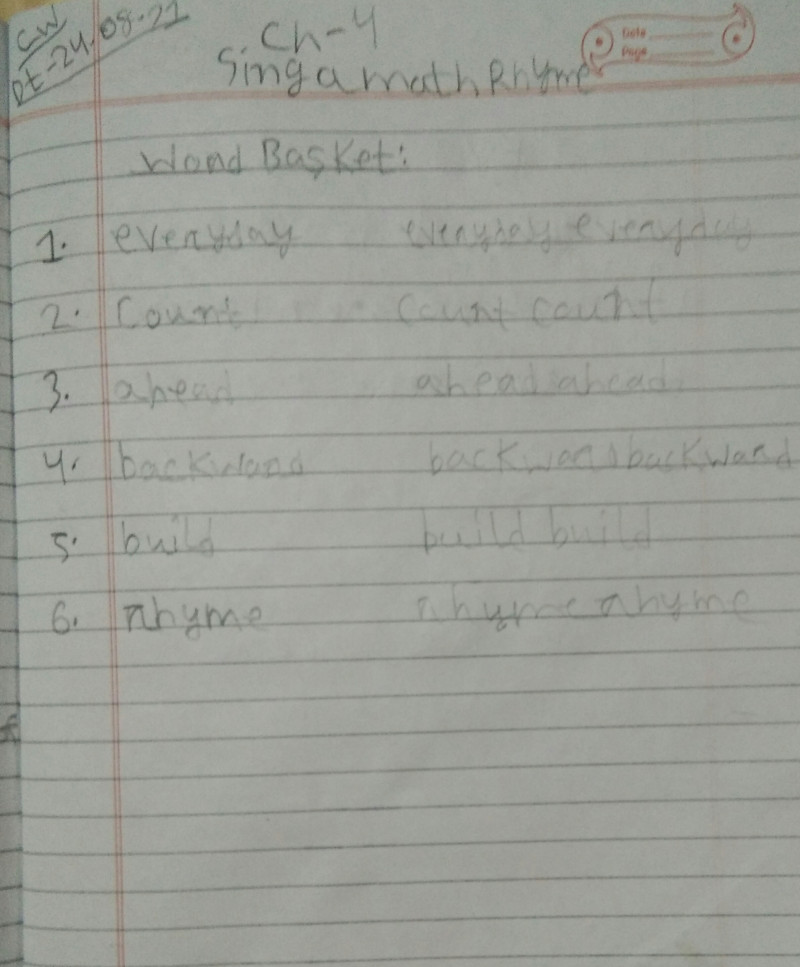 CW
Dt-24.08.21
Ch-4
Date
Page
Sing a math Rhyme
Word Basket:
1. everyday everyday everyday
2. Count Count count
3. ahead ahead ahead
4. backward backward backward
5. build build build
6. rhyme rhyme rhyme